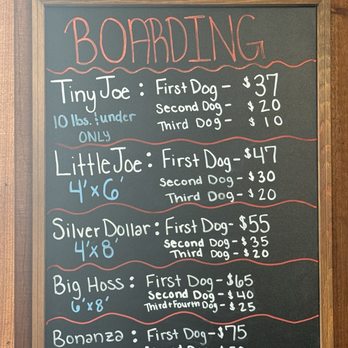 BOARDING
Tiny Joe: First Dog - $37
10 lbs. & under Second Dog - $20
ONLY Third Dog - $10
Little Joe: First Dog - $47
4'x6' Second Dog - $30
Third Dog - $20
Silver Dollar: First Dog - $55
4'x8' Second Dog - $35
Third Dog $20
Big Hoss: First Dog - $65
6'x8' Second Dog - $40
Third + Fourth Dog - $25
Bonanza: First Dog - $75